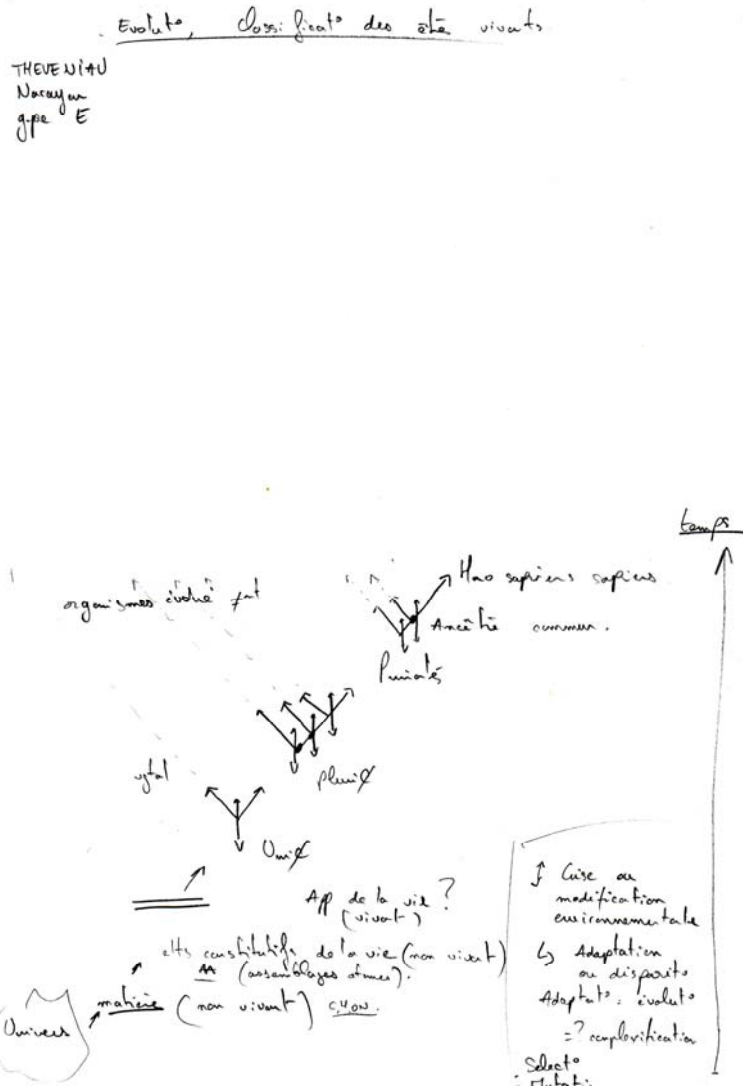 Evolut°, Classificat° des êtē vivants
THEVENIAU
Narayan
gpe E
temps
Homo sapiens sapiens
organismes évolué ≠nt
Ancêtrē commun.
Primatés
vgtal
pluriȻ
UniȻ
App de la vie ?
(vivant)
elts constitutifs de la vie (non vivant)
AA (assemblages atomes).
matière (non vivant) C,H,O,N.
Univers
↕ Crise ou
modification
environnementale
↳ Adaptation
ou disparit°
Adaptat° = évolut°
=? complexification
Select°